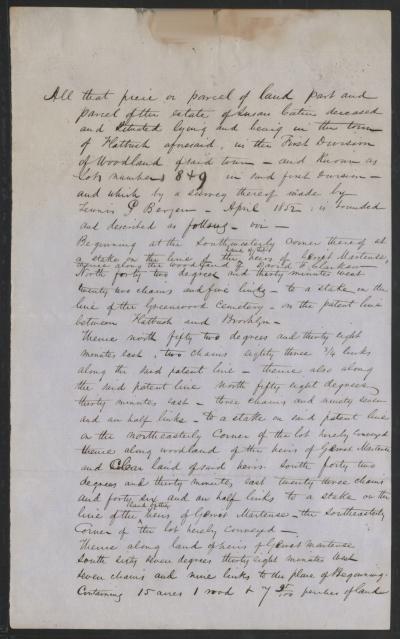 All that piece or parcel of land part and
parcel of the estate of Susan Caton deceased
and situated lying and being in the town
of Flatbush aforesaid, in the First Division
of Woodland of said town - and known as
lots numbers 8 & 9 in said first division -
and which by a survey thereof made by
Teunis G Bergen - April 1852, is bounded
and described as follows - viz -
Beginning at the Southwesterly corner thereof at
a stake on the line of land of the heirs of Gerret Martense,
thence along the woodland of David Clarkson
North forty two degrees and thirty minutes west
twenty two chains and five links - to a stake in the
line of the Greenwood Cemetery - on the patent line
between Flatbush and Brooklyn -
Thence north fifty two degrees and thirty eight
minutes east - two chains eighty three 3/4 links
along the said patent line - thence also along
the said patent line North fifty eight degrees
thirty minutes east - three chains and ninety seven
and an half links - to a stake on said patent line
on the northeasterly corner of the lot hereby conveyed
thence along woodland of the heirs of Gerret Martense
and land of said heirs South forty two
degrees and thirty minutes east twenty three chains
and forty six and an half links to a stake on the
line of land of the heirs of Gerret Martense - the Southeasterly
Corner of the lot hereby conveyed -
Thence along land of heirs of Gerret Martense
South sixty seven degrees thirty eight minutes west
seven chains and nine links to the place of Beginning.
Containing 15 acres 1 rood & 7 perches of land